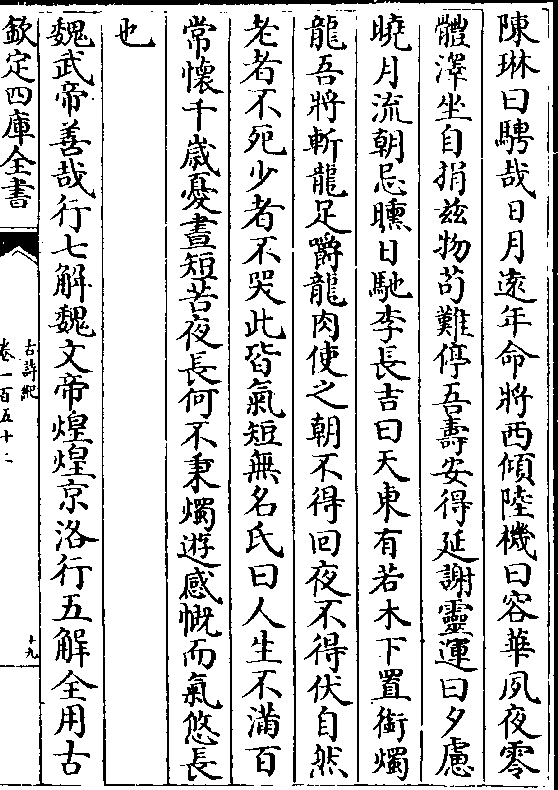 陳琳曰騁哉日月遠年命將西傾陸機曰容華夙夜零
體澤坐自捐兹物苟難停吾壽安得延謝靈運曰夕慮
曉月流朝忌曛日馳李長吉曰天東有若木下置銜燭
龍吾將斬龍足嚼龍肉使之朝不得回夜不得伏自然
老者不死少者不哭此皆氣短無名氏曰人生不滿百
常懷千歲憂晝短苦夜長何不秉燭遊感慨而氣悠長
也
魏武帝善哉行七解魏文帝煌煌京洛行五解全用古
欽定四庫全書
古詩紀
卷一百五十二
十九